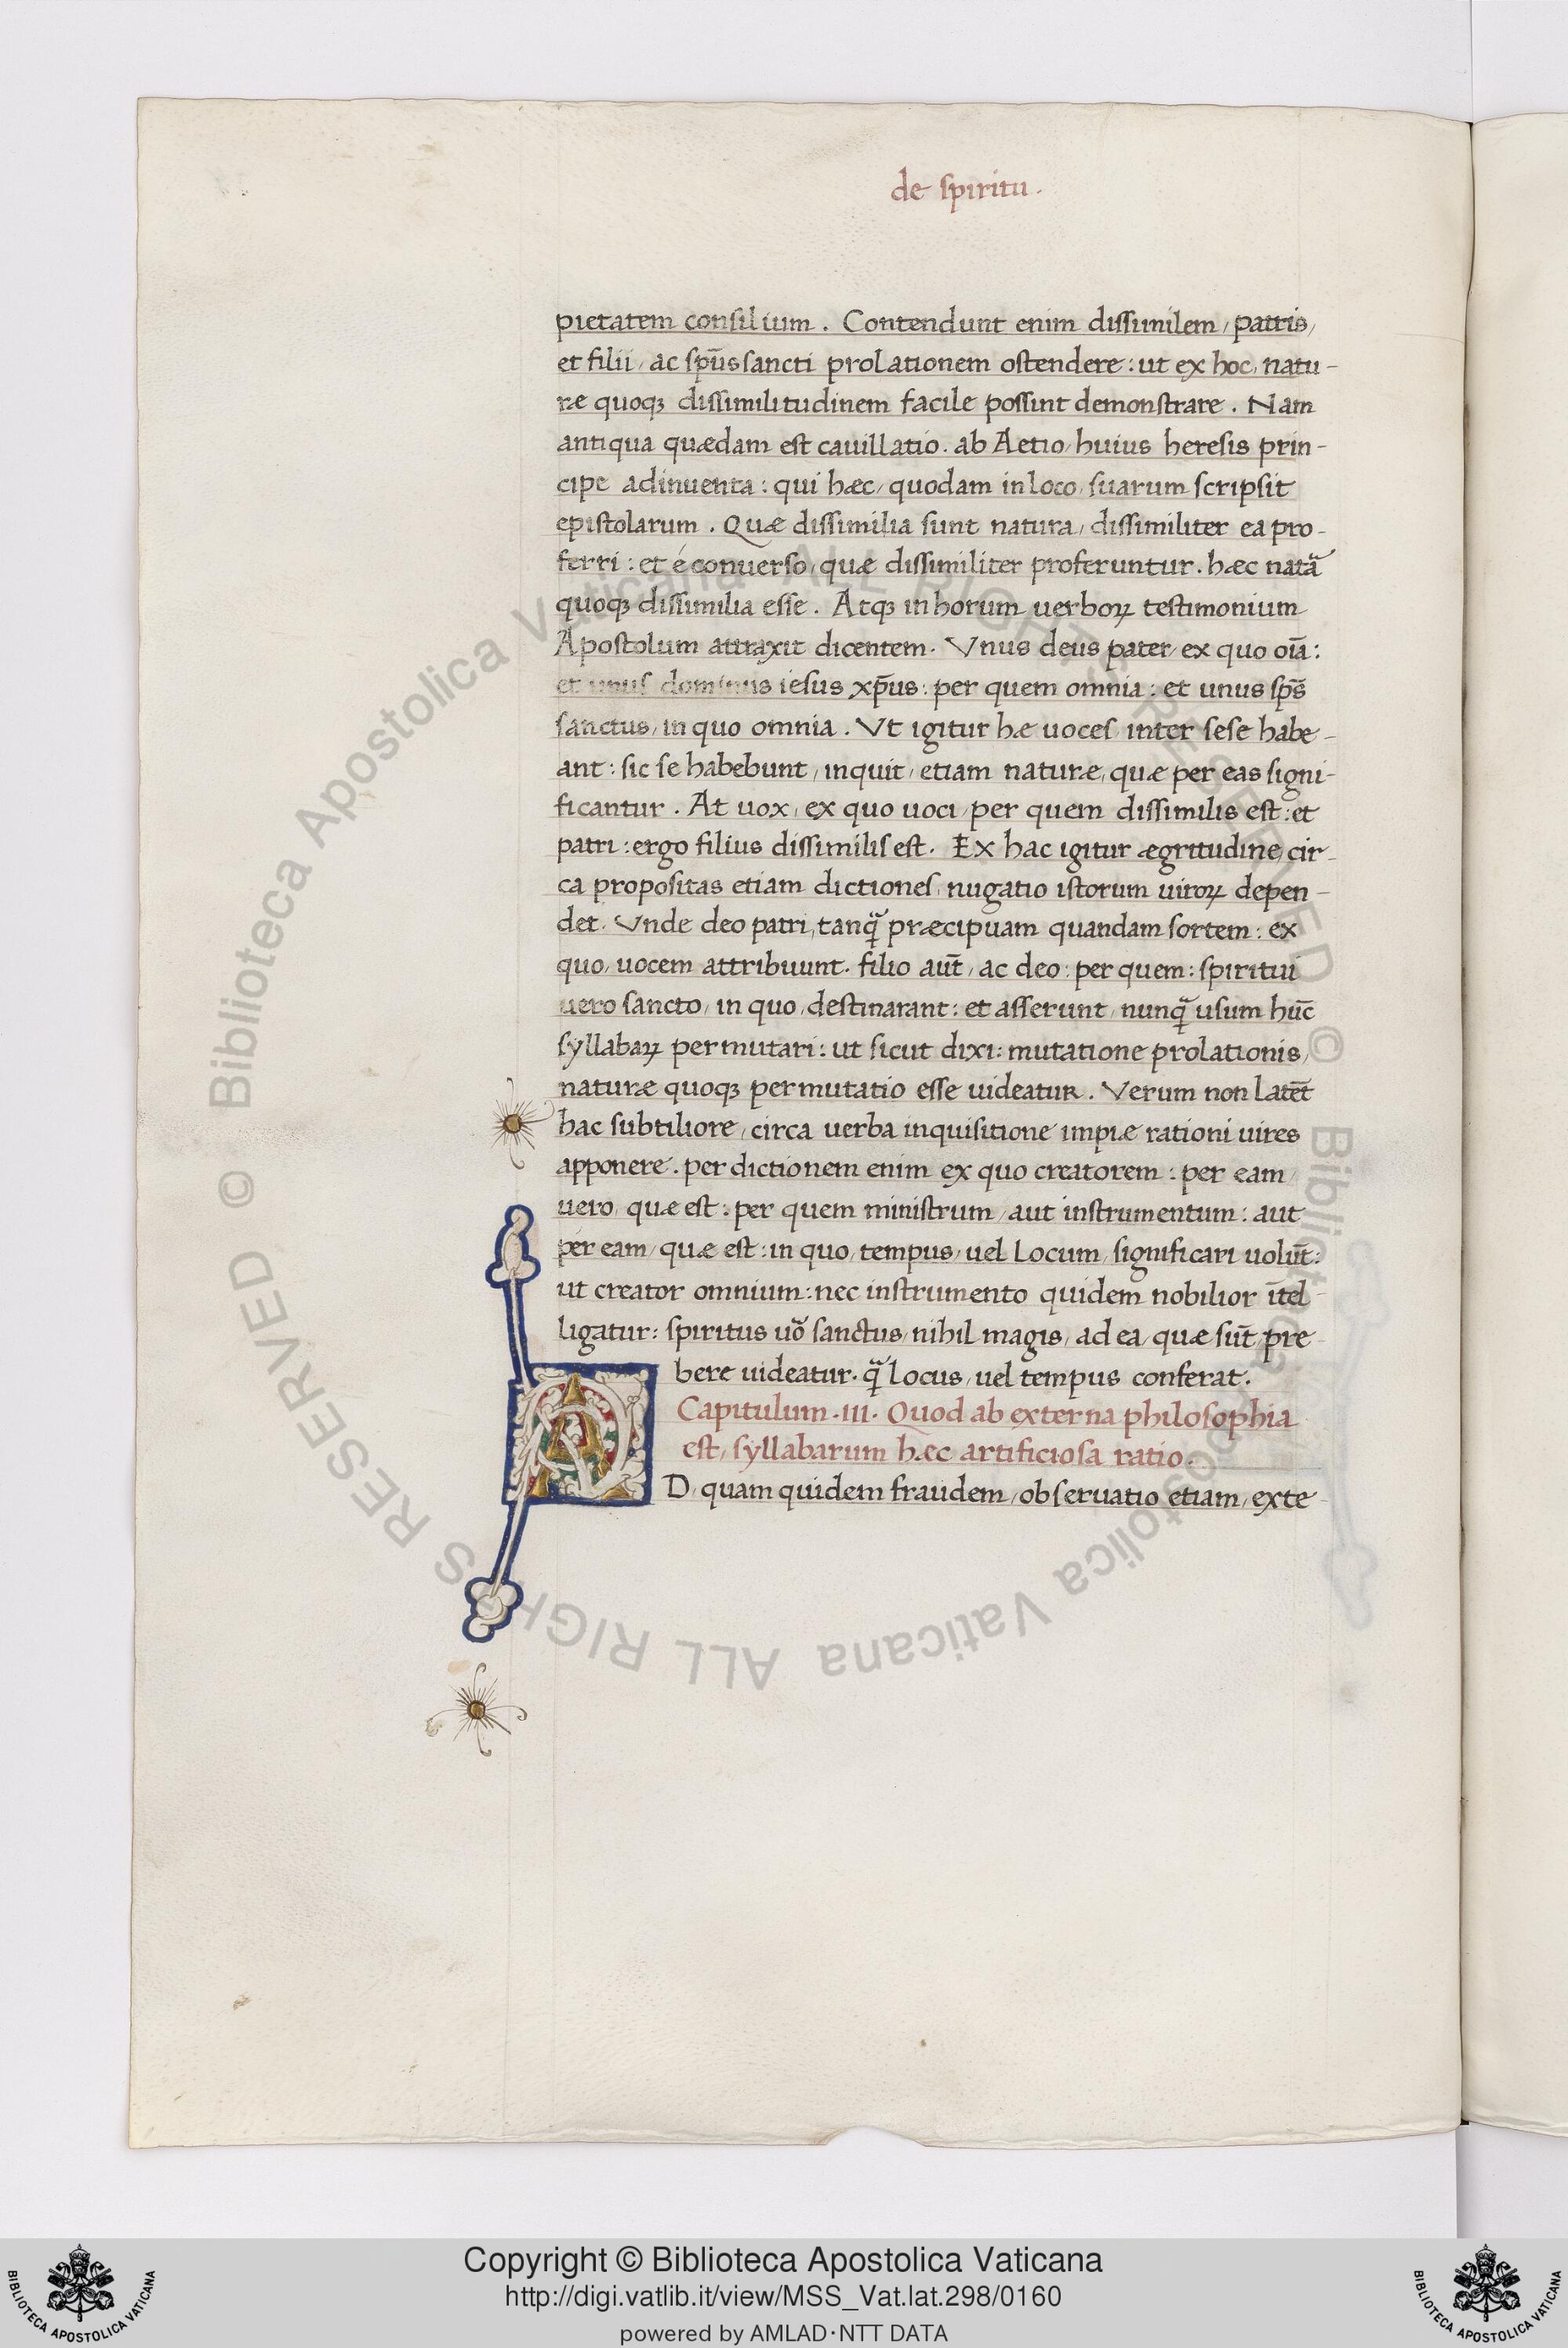 de spiritu.
pietatem consilium. Contendunt enim dissimilem, patris,
et filii, ac sp̄us sancti prolationem ostendere: ut ex hoc, natu-
ræ quoqꝫ dissimilitudinem facile possint demonstrare. Nam
antiqua quædam est cauillatio. ab Aetio, huius heresis prin-
cipe adinuenta: qui hæc, quodam in loco, suarum scripsit
epistolarum. Quæ dissimilia sunt natura, dissimiliter ea pro-
ferri: et é conuerso, quæ dissimiliter proferuntur. hæc natᷓa
quoqꝫ dissimilia esse. Atqꝫ in horum uerboꝝ testimonium
Apostolum attraxit dicentem. Vnus deus pater, ex quo oīa:
et unus dominus iesus xp̄us: per quem omnia: et unus sp̄s
sanctus, in quo omnia. Vt igitur hæ uoces, inter sese habe-
ant: sic se habebunt, inquit, etiam naturæ, quæ per eas signi-
ficantur. At uox, ex quo uoci, per quem dissimilis est: et
patri: ergo filius dissimilis est. Ex hac igitur ægritudine, cir-
ca propositas etiam dictiones, nugatio istorum uiroꝝ depen-
det. Vnde deo patri, tanqᷓ præcipuam quandam sortem: ex
quo, uocem attribuunt. filio aut̄, ac deo: per quem: spiritui
uero sancto, in quo, destinarant: et asserunt, nunqᷓ usum hūc
syllabaꝝ permutari: ut sicut dixi: mutatione prolationis,
naturæ quoqꝫ permutatio esse uideatur. Verum non latēt
hac subtiliore, circa uerba inquisitione impiæ rationi uires
apponere. per dictionem enim ex quo creatorem: per eam,
uero, quæ est: per quem ministrum, aut instrumentum: aut
per eam, quæ est: in quo, tempus, uel locum, significari uolūt:
ut creator omnium: nec instrumento quidem nobilior ītel-
ligatur: spiritus uō sanctus, nihil magis, ad ea, quæ sūt, pre-
bere uideatur. qᷓ locus, uel tempus conferat.
Capitulum .III. Quod ab externa philosophia
est, syllabarum hæc artificiosa ratio.
AD, quam quidem fraudem, obseruatio etiam, exte-
© Biblioteca Apostolica Vaticana ALL RIGHTS RESERVED © Biblioteca Apostolica Vaticana ALL RIGHTS RESERVED
Copyright © Biblioteca Apostolica Vaticana
http://digi.vatlib.it/view/MSS_Vat.lat.298/0160
powered by AMLAD·NTT DATA
BIBLIOTECA APOSTOLICA VATICANA
BIBLIOTECA APOSTOLICA VATICANA